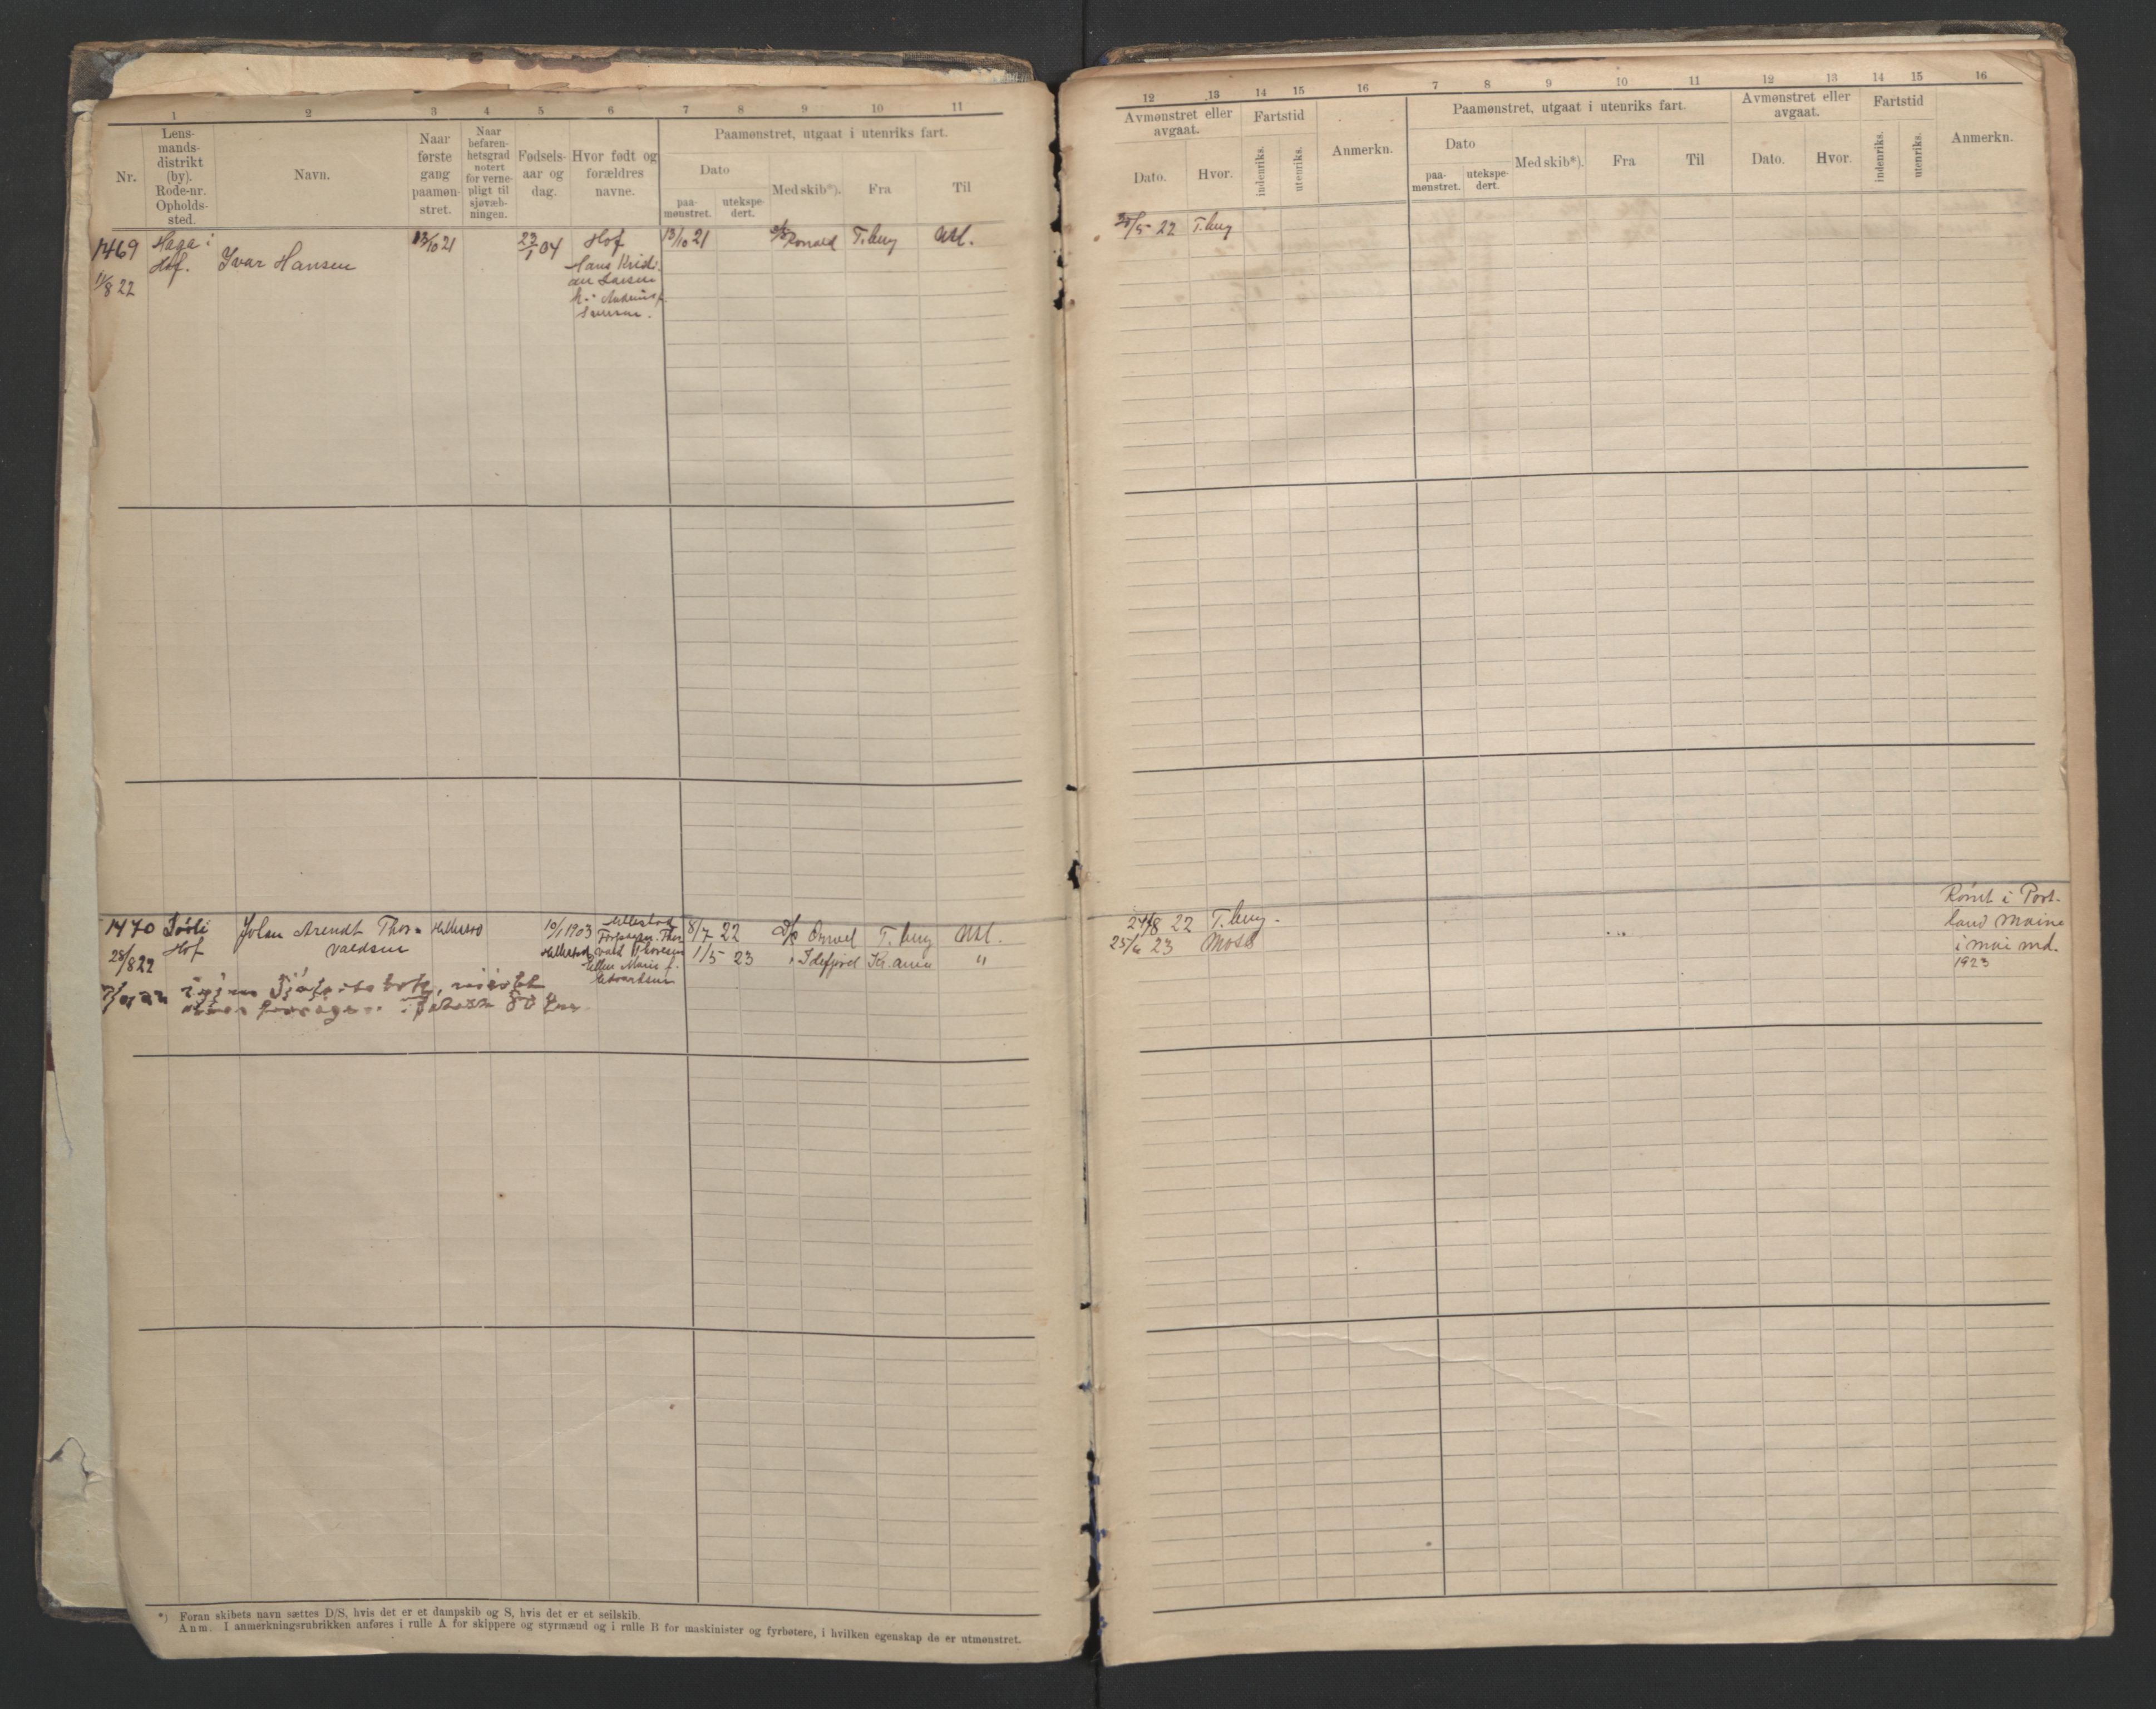 1 2 3 4 5 6 7 8 9 10 11
Nr.
Lens-
mands-
distrikt
(by).
Rode-nr.
Opholds-
sted.
Navn.
Naar
første
gang
paamøn-
stret.
Naar
befaren-
hetsgrad
notert
for verne-
pligt til
sjøvæb-
ningen.
Fødsels-
aar og
dag.
Hvor født og
forældres
navne.
Paamønstret, utgaat i utenriks fart.
Dato
paa-
mønstret.
utekspe-
dert.
Med skib*).
Fra
Til
1469 Haga i Hof 13/10 21
Hof. Ivar Hansen 23/1 04 13/10 21 Ronald T.berg Utl.
11/8 22
Hans Kristi-
an Larsen
1470 Johan Arendt Thor- 10/1 1903 8/7 22 Ørnvel T.berg Utl.
Hof valdsen 1/5 23 Idefjord Kr.ania "
28/8 22
Ellen Marie f.
*) Foran skibets navn sættes D/S, hvis det er et dampskib og S, hvis det er et seilskib.
Anm. I anmerkningsrubrikken anføres i rulle A for skippere og styrmænd og i rulle B for maskinister og fyrbøtere, i hvilken egenskap de er utmønstret.
12 13 14 15 16 7 8 9 10 11 12 13 14 15 16
Avmønstret eller
avgaat.
Dato.
Hvor.
Fartstid
indenriks.
utenriks.
Anmerkn.
Paamønstret, utgaat i utenriks fart.
Dato
paa-
mønstret.
utekspe-
dert.
Med skib*).
Fra
Til
Avmønstret eller
avgaat.
Dato.
Hvor.
Fartstid
indenriks.
utenriks.
Anmerkn.
/5 22 T.berg
24/8 22 T.berg.
25/6 23 Moss
Rømt i Port-
land Maine
i mai md.
1923